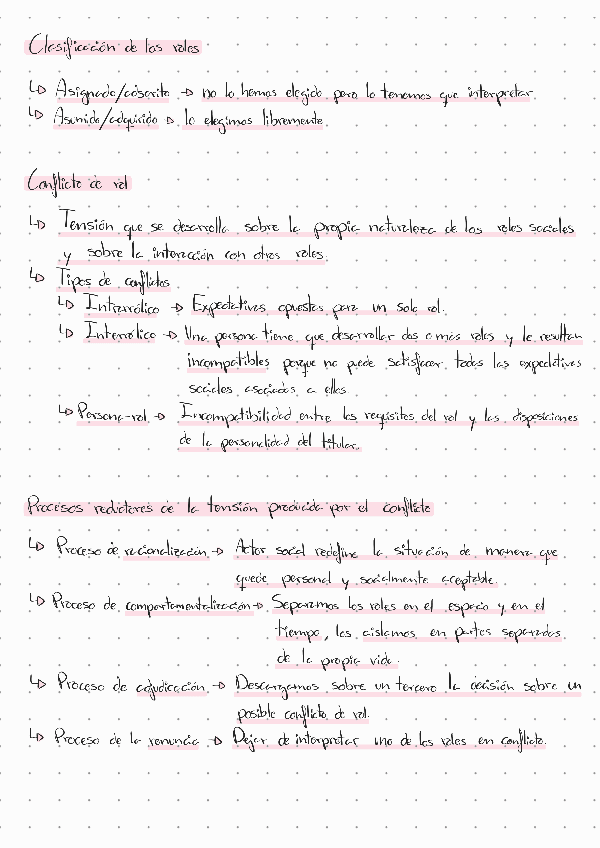 Clasificación de los roles
↳ Asignado/adscrito → no lo hemos elegido pero lo tenemos que interpretar.
↳ Asumido/adquirido → lo elegimos libremente.
Conflicto de rol
↳ Tensión que se desarrolla sobre la propia naturaleza de los roles sociales
y sobre la interacción con otros roles.
↳ Tipos de conflictos
↳ Intrarrólico → Expectativas opuestas para un solo rol.
↳ Interrólico → Una persona tiene que desarrollar dos o más roles y le resultan
incompatibles porque no puede satisfacer todas las expectativas
sociales asociadas a ellos
↳ Persona-rol → Incompatibilidad entre los requisitos del rol y las disposiciones
de la personalidad del titular.
Procesos reductores de la tensión producida por el conflicto
↳ Proceso de racionalización → Actor social redefine la situación de manera que
quede personal y socialmente aceptable.
↳ Proceso de compartamentalización → Separamos los roles en el espacio y en el
tiempo, los aislamos en partes separadas
de la propia vida.
↳ Proceso de adjudicación → Descargamos sobre un tercero la decisión sobre un
posible conflicto de rol.
↳ Proceso de la renuncia → Dejar de interpretar uno de los roles en conflicto.